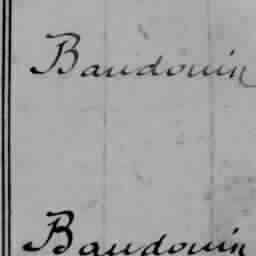 Baudouin
Baudouin